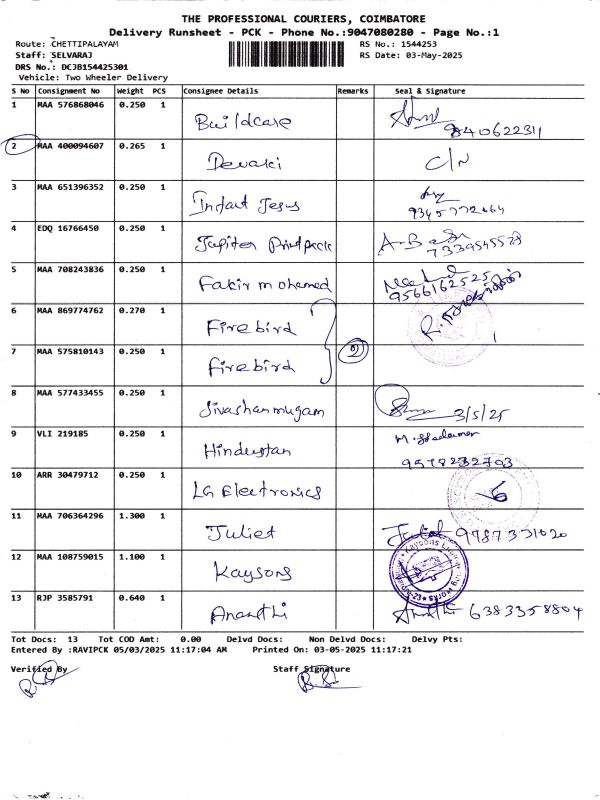 THE PROFESSIONAL COURIERS, COIMBATORE
Delivery Runsheet - PCK - Phone No.:9047080280 - Page No.:1
Route: CHETTIPALAYAM RS No.: 1544253
Staff: SELVARAJ RS Date: 03-May-2025
DRS No.: DCJB154425301
Vehicle: Two Wheeler Delivery
S No Consignment No Weight PCS Consignee Details Remarks Seal & Signature
1 MAA 576868046 0.250 1 Buildcare 9840622311
2 MAA 400094607 0.265 1 Devaki C/N
3 MAA 651396352 0.250 1 Infant Jesus
4 EDQ 16766450 0.250 1 Jupiter Printpack
5 MAA 708243836 0.250 1 Fakir mohamed 9566162525
6 MAA 869774762 0.270 1 Firebird
7 MAA 575810143 0.250 1 Firebird 2
8 MAA 577433455 0.250 1 Sivashanmugam 3/5/25
9 VLI 219185 0.250 1 Hindustan 9578232703
10 ARR 30479712 0.250 1 LG Electronics
11 MAA 706364296 1.300 1 Juliet Juliet 9787331020
12 MAA 108759015 1.100 1 Kaysons
13 RJP 3585791 0.640 1 Ananthi Ananthi 6383358804
Tot Docs: 13 Tot COD Amt: 0.00 Delvd Docs: Non Delvd Docs: Delvy Pts:
Entered By :RAVIPCK 05/03/2025 11:17:04 AM Printed On: 03-05-2025 11:17:21
Verified By Staff Signature